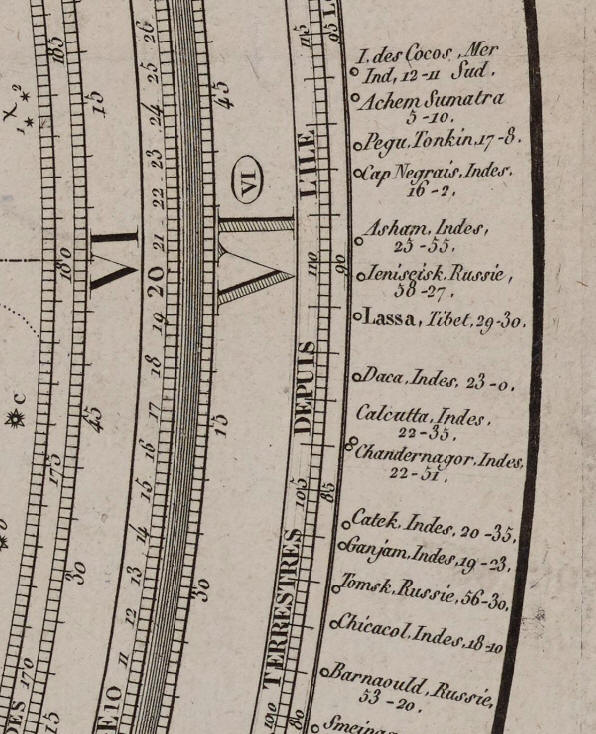 I. des Cocos, Mer
Ind, 12-11 Sud.
Achem Sumatra
5-10.
Pegu, Tonkin, 17-8.
Cap Negrais, Indes.
16-2.
Asham, Indes,
25-55.
Ieniseisk, Russie,
58-27.
Lassa, Tibet, 29-30.
Daca, Indes, 23-0.
Calcutta, Indes.
22-35.
Chandernagor, Indes,
22-51.
Catek, Indes, 20-35,
Ganjam, Indes, 19-23,
Tomsk, Russie, 56-30,
Chicacol, Indes, 18-10
Barnaould, Russie,
53-20.
TERRESTRES DEPUIS L'ILE
115
110
105
100
95
90
85
80
VI
VI
VI
45
15
30
26
25
24
23
22
21
20
19
18
17
16
15
14
13
12
11
E 10
15
45
30
15
185
180
175
170
DES
2
1
C